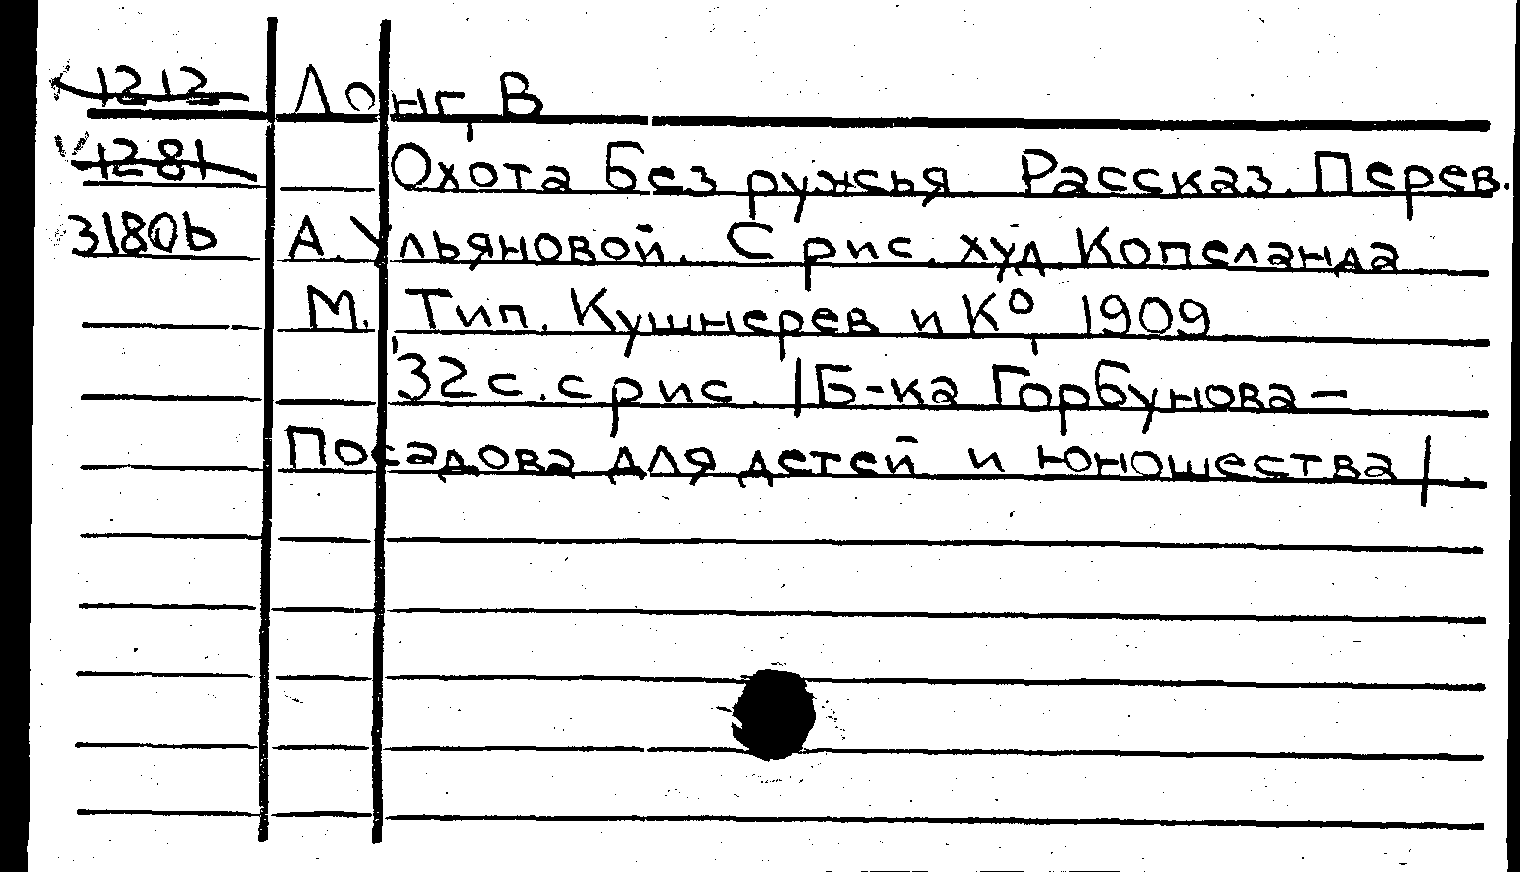 1212 Лонг, В
1281 Охота без ружья. Рассказ. Перев.
3180b А. Ульяновой. С рис. худ. Копеланда
М. Тип. Кушнерев и Ко 1909
32 с. с рис. |Б-ка Горбунова–
Посадова для детей и юношества|